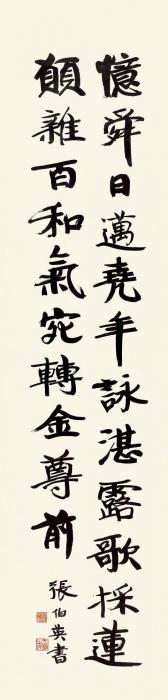 憶舜日邁堯年詠湛露歌採蓮
願雜百和氣宛轉金尊前
張伯英書